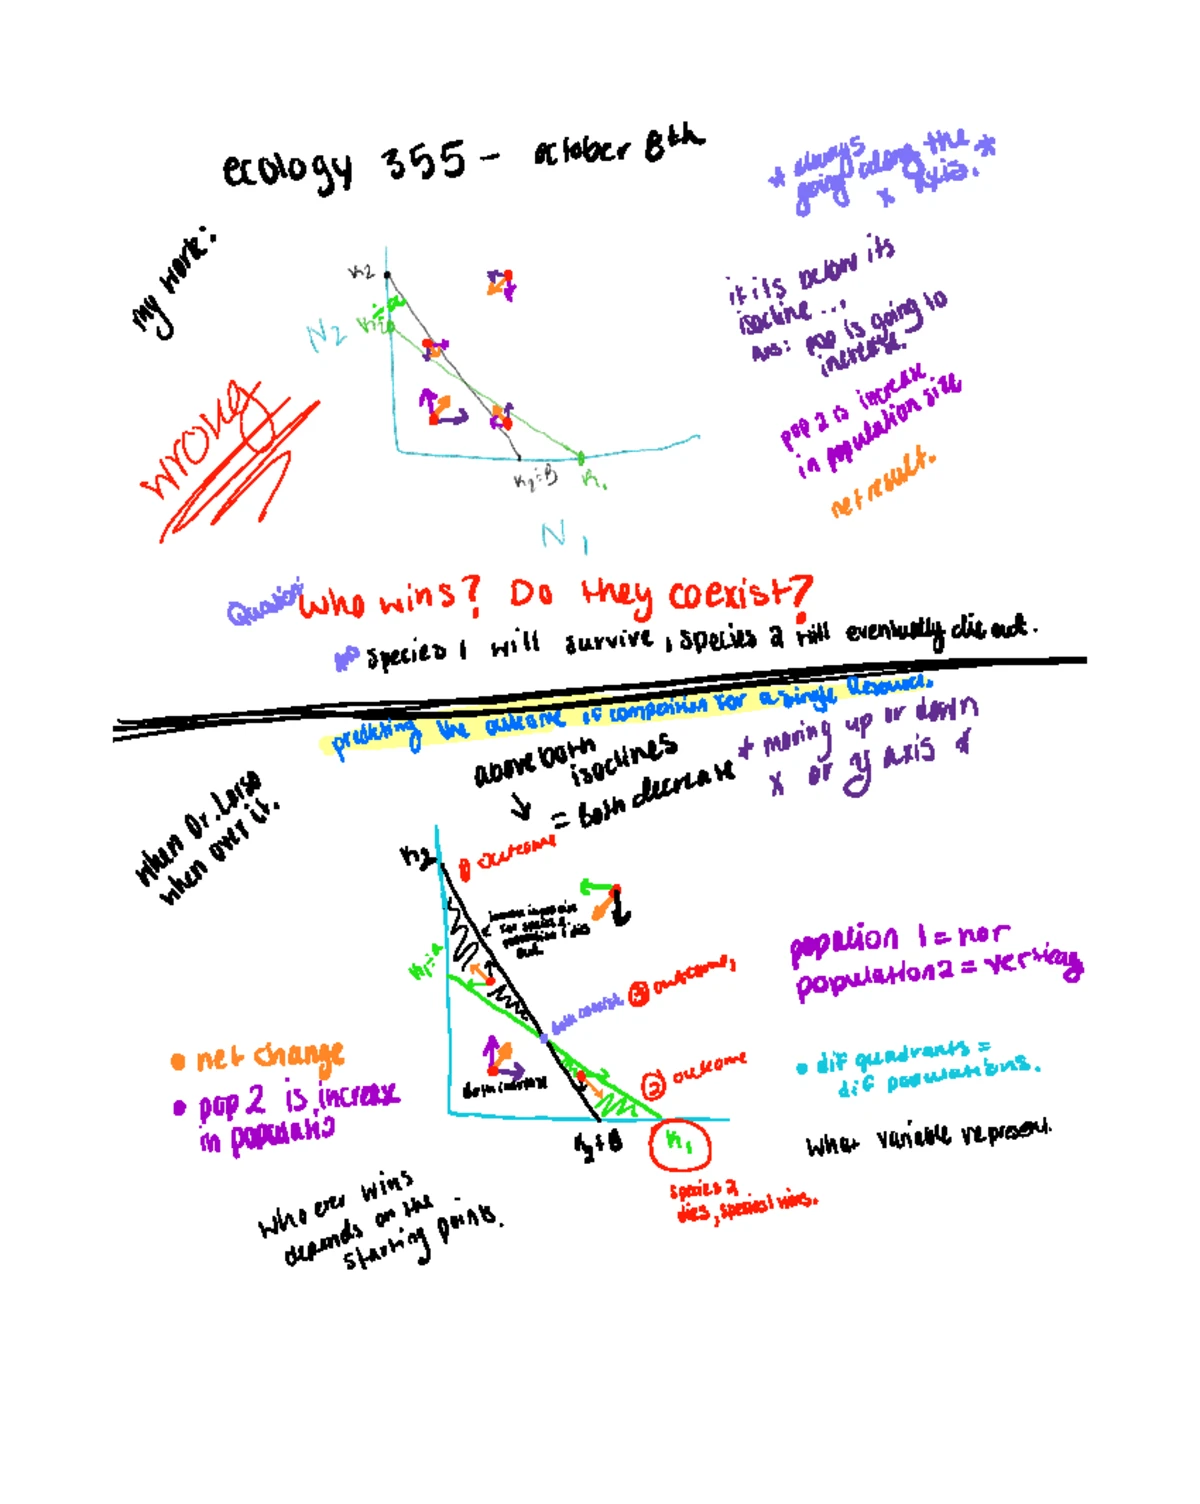 ecology 355 - october 8th
* always
going along the *
x axis.
my work:
K2
K1÷α
N2
wrong
K2÷B
K1
N1
if its below its
isocline...
Ans: pop is going to
increase.
pop 2 is increase
in population size
net result.
Question: Who wins? Do they coexist?
Ans species 1 will survive, species 2 will eventually die out.
predicting the outcome of competition for a single resource.
when Dr. Larsa
when over it.
above both
isoclines
↓
= both decrease
* moving up or down
x or y axis
K2
① outcome
for species 2.
population 1 dies
out.
K1÷α
both coexist ③ outcome,
② outcome
both increase
K2÷B
K1
species 2
dies, species 1 wins.
popation 1 = hor
population 2 = verticay
• dif quadrants =
dif populations.
what variable represent.
• net change
• pop 2 is increase
in populatio
who ever wins
depends on the
starting points.